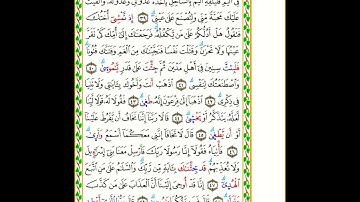 فِى ٱلْيَمِّ فَلْيُلْقِهِ ٱلْيَمُّ بِٱلسَّاحِلِ يَأْخُذْهُ عَدُوٌّ لِّى وَعَدُوٌّ لَّهُۥ وَأَلْقَيْتُ
عَلَيْكَ مَحَبَّةً مِّنِّى وَلِتُصْنَعَ عَلَىٰ عَيْنِىٓ ٣٩ إِذْ تَمْشِىٓ أُخْتُكَ
فَتَقُولُ هَلْ أَدُلُّكُمْ عَلَىٰ مَن يَكْفُلُهُۥ فَرَجَعْنَٰكَ إِلَىٰٓ أُمِّكَ كَىْ تَقَرَّ
عَيْنُهَا وَلَا تَحْزَنَ وَقَتَلْتَ نَفْسًا فَنَجَّيْنَٰكَ مِنَ ٱلْغَمِّ وَفَتَنَّٰكَ فُتُونًا
فَلَبِثْتَ سِنِينَ فِىٓ أَهْلِ مَدْيَنَ ثُمَّ جِئْتَ عَلَىٰ قَدَرٍ يَٰمُوسَىٰ ٤٠
وَٱصْطَنَعْتُكَ لِنَفْسِى ٤١ ٱذْهَبْ أَنتَ وَأَخُوكَ بِـَٔايَٰتِى وَلَا تَنِيَا
فِى ذِكْرِى ٤٢ ٱذْهَبَآ إِلَىٰ فِرْعَوْنَ إِنَّهُۥ طَغَىٰ ٤٣ فَقُولَا لَهُۥ قَوْلًا لَّيِّنًا
لَّعَلَّهُۥ يَتَذَكَّرُ أَوْ يَخْشَىٰ ٤٤ قَالَا رَبَّنَآ إِنَّنَا نَخَافُ أَن يَفْرُطَ عَلَيْنَآ
أَوْ أَن يَطْغَىٰ ٤٥ قَالَ لَا تَخَافَآ إِنَّنِى مَعَكُمَآ أَسْمَعُ وَأَرَىٰ ٤٦
فَأْتِيَاهُ فَقُولَآ إِنَّا رَسُولَا رَبِّكَ فَأَرْسِلْ مَعَنَا بَنِىٓ إِسْرَٰٓءِيلَ
وَلَا تُعَذِّبْهُمْ قَدْ جِئْنَٰكَ بِـَٔايَةٍ مِّن رَّبِّكَ وَٱلسَّلَٰمُ عَلَىٰ مَنِ ٱتَّبَعَ
ٱلْهُدَىٰٓ ٤٧ إِنَّا قَدْ أُوحِىَ إِلَيْنَآ أَنَّ ٱلْعَذَابَ عَلَىٰ مَن كَذَّبَ